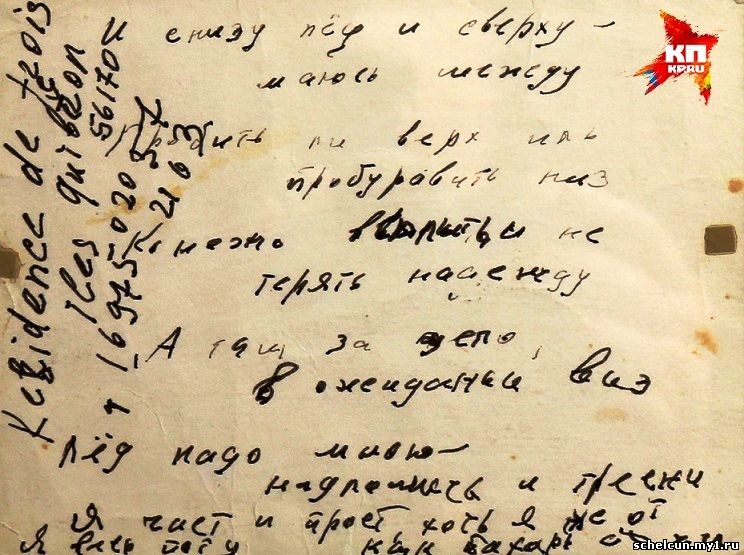 И снизу лёд и сверху —
маюсь между
Пробить ли верх иль
пробуравить низ
Конечно всплыть и не
терять надежду
А там за дело,
в ожидании виз
Лёд надо мною —
надломись и тресни
Я чист и прост хоть я не от
Я весь поту как пахарь от
Residence de trois
Iles quibron
56170
КП
KP.RU
schelcun.my1.ru